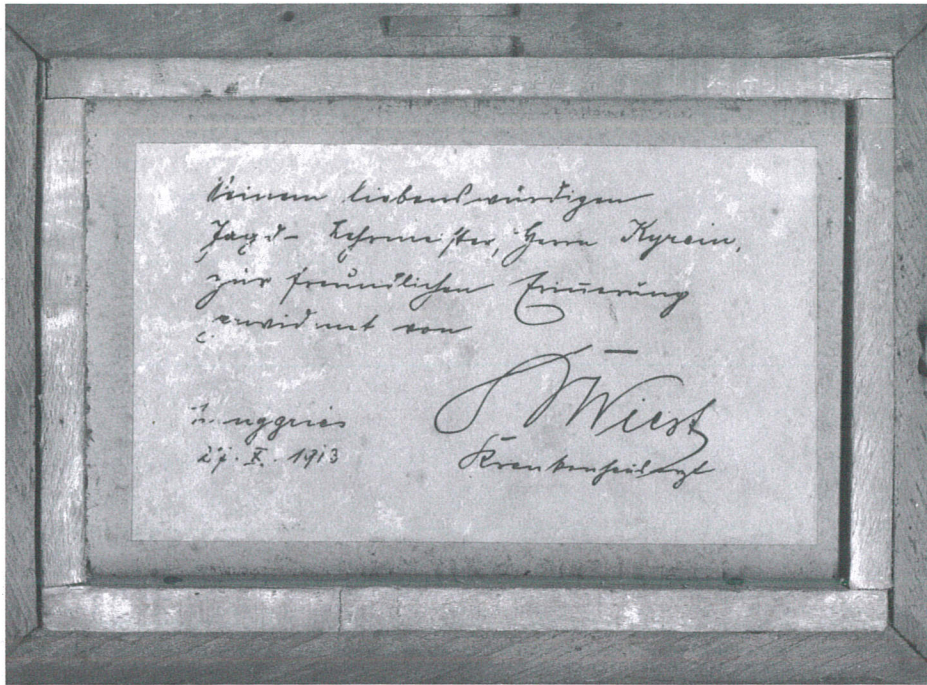 Seinem liebenswürdigen
Jagd-Lehrmeister, Herrn Kyrein,
zur freundlichen Erinnerung
gewidmet von
Wiest
Krankenhausarzt
Lenggries
X. 1913